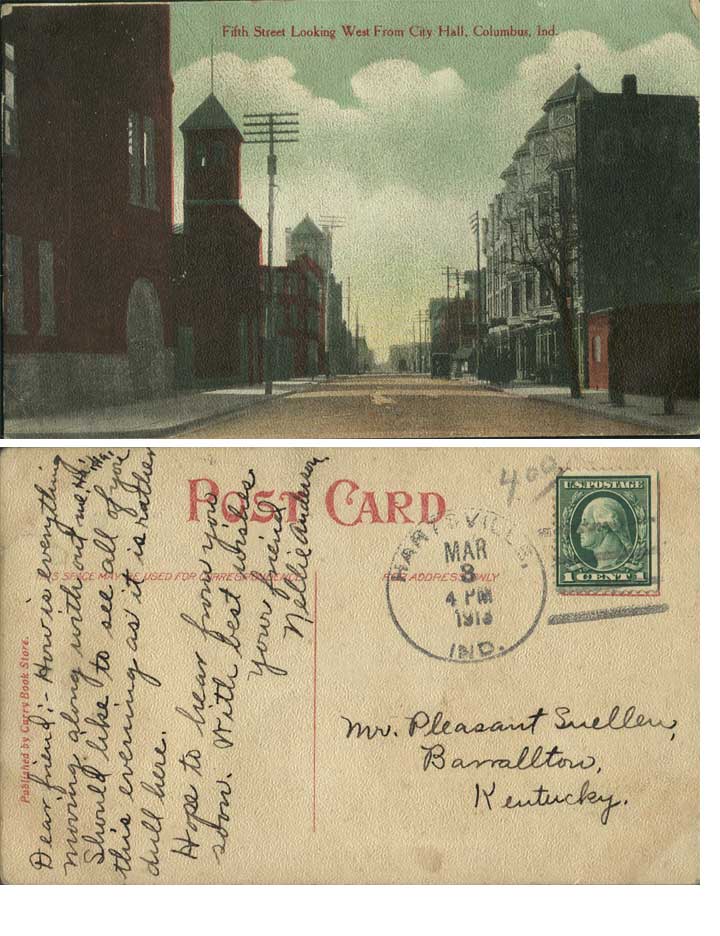 Fifth Street Looking West From City Hall, Columbus, Ind.
POST CARD
THIS SPACE MAY BE USED FOR CORRESPONDENCE
FOR ADDRESS ONLY
Published by Curry Book Store.
400
U.S. POSTAGE
1 CENT 1
HARTSVILLE,
MAR
8
4 PM
IND.
Dear friend:- How is everything
moving along with out me. Ha! Ha!
Should like to see all of you
this evening as it is rather
dull here.
Hope to hear from you
soon. With best wishes
your friend
Nellie Anderson
Mr. Pleasant
Kentucky.